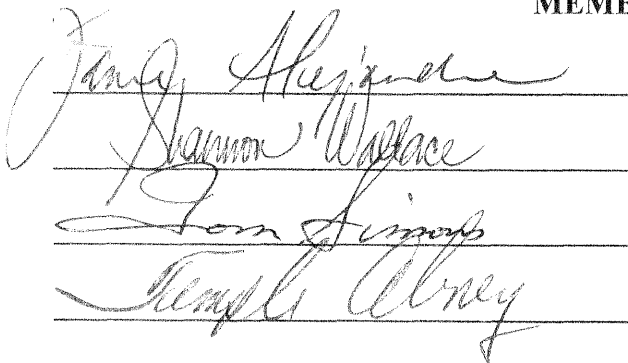 MEMBE
Alejandre
Shannon Wallace
Tom Simons
Temple Abney